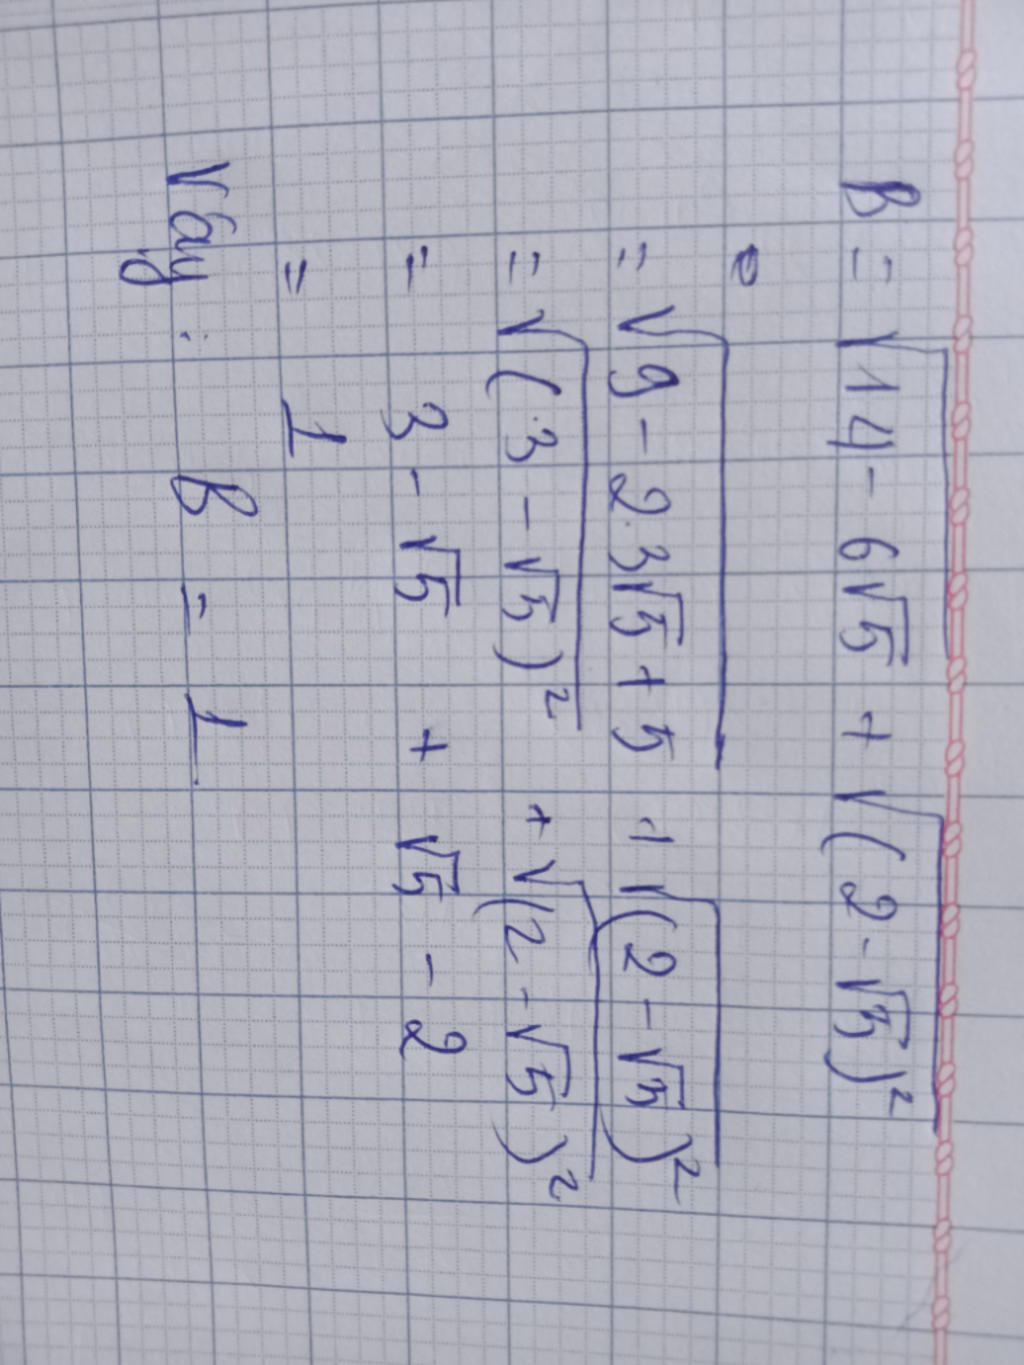 B = √(14 - 6√5) + √((2 - √5)²)
= √(9 - 2.3√5 + 5) + √((2 - √5)²)
= √((3 - √5)²) + √((2 - √5)²)
= 3 - √5 + √5 - 2
= 1
Vậy : B = 1.